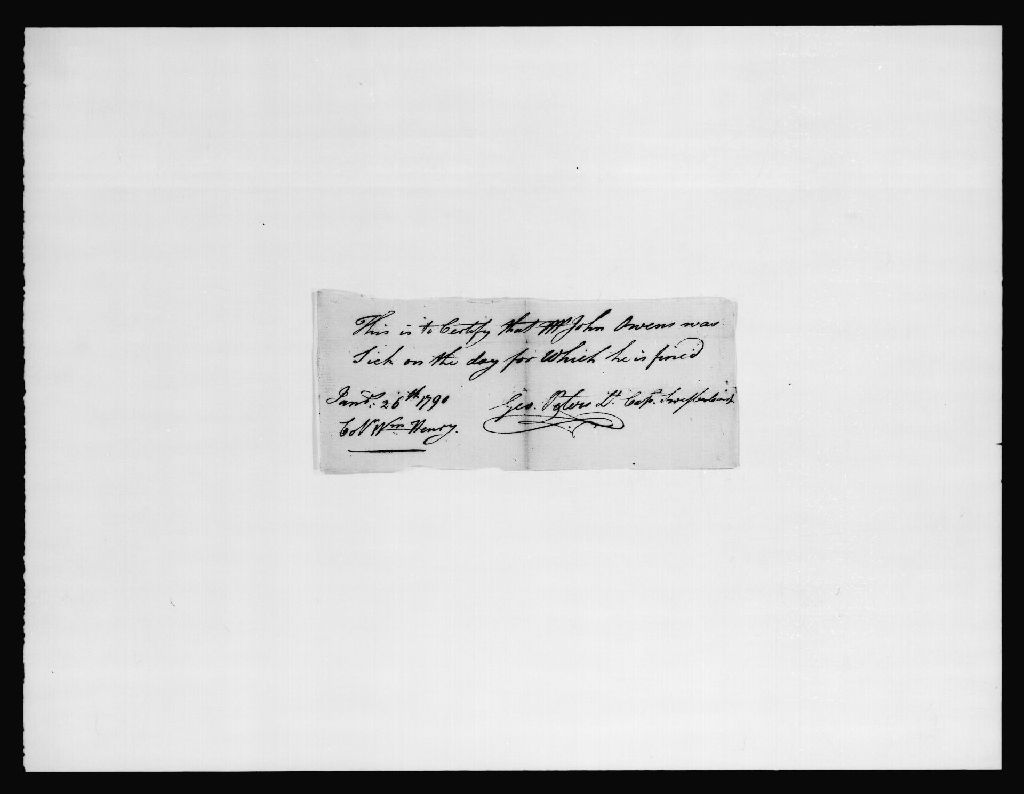 This is to Certify that Mr John Owens was
Sick on the day for Which he is fined
Jany. 26th 1790 Geo. Peters Lt. Capt.
Col Wm Henry.